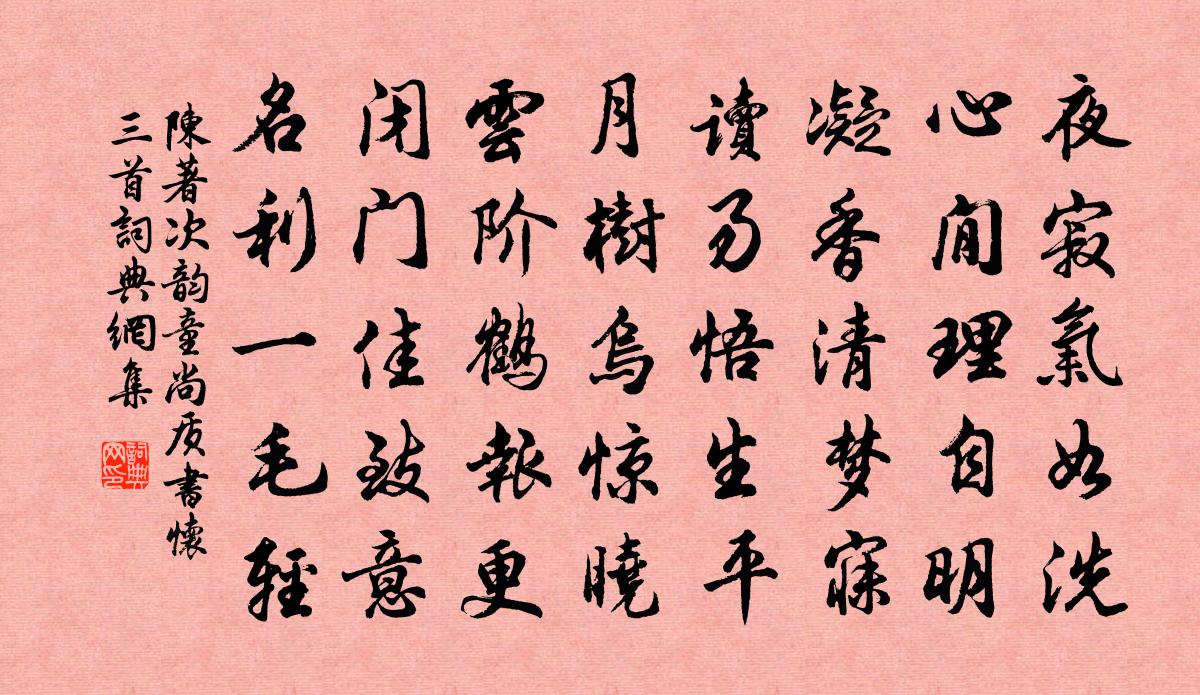 夜寂氣如洗
心閒理自明
凝香清梦寐
讀易悟生平
月樹烏惊曉
雲阶鶴報更
闭门佳致意
名利一毛輕
陳著次韵童尚质書懷
三首詞典網集
詞典
网印